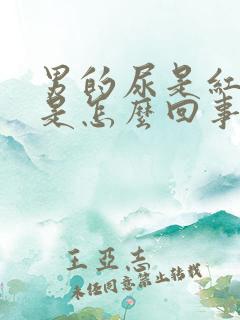 男的尿是红
是怎麼回事
王亞志
未经同意禁止转载